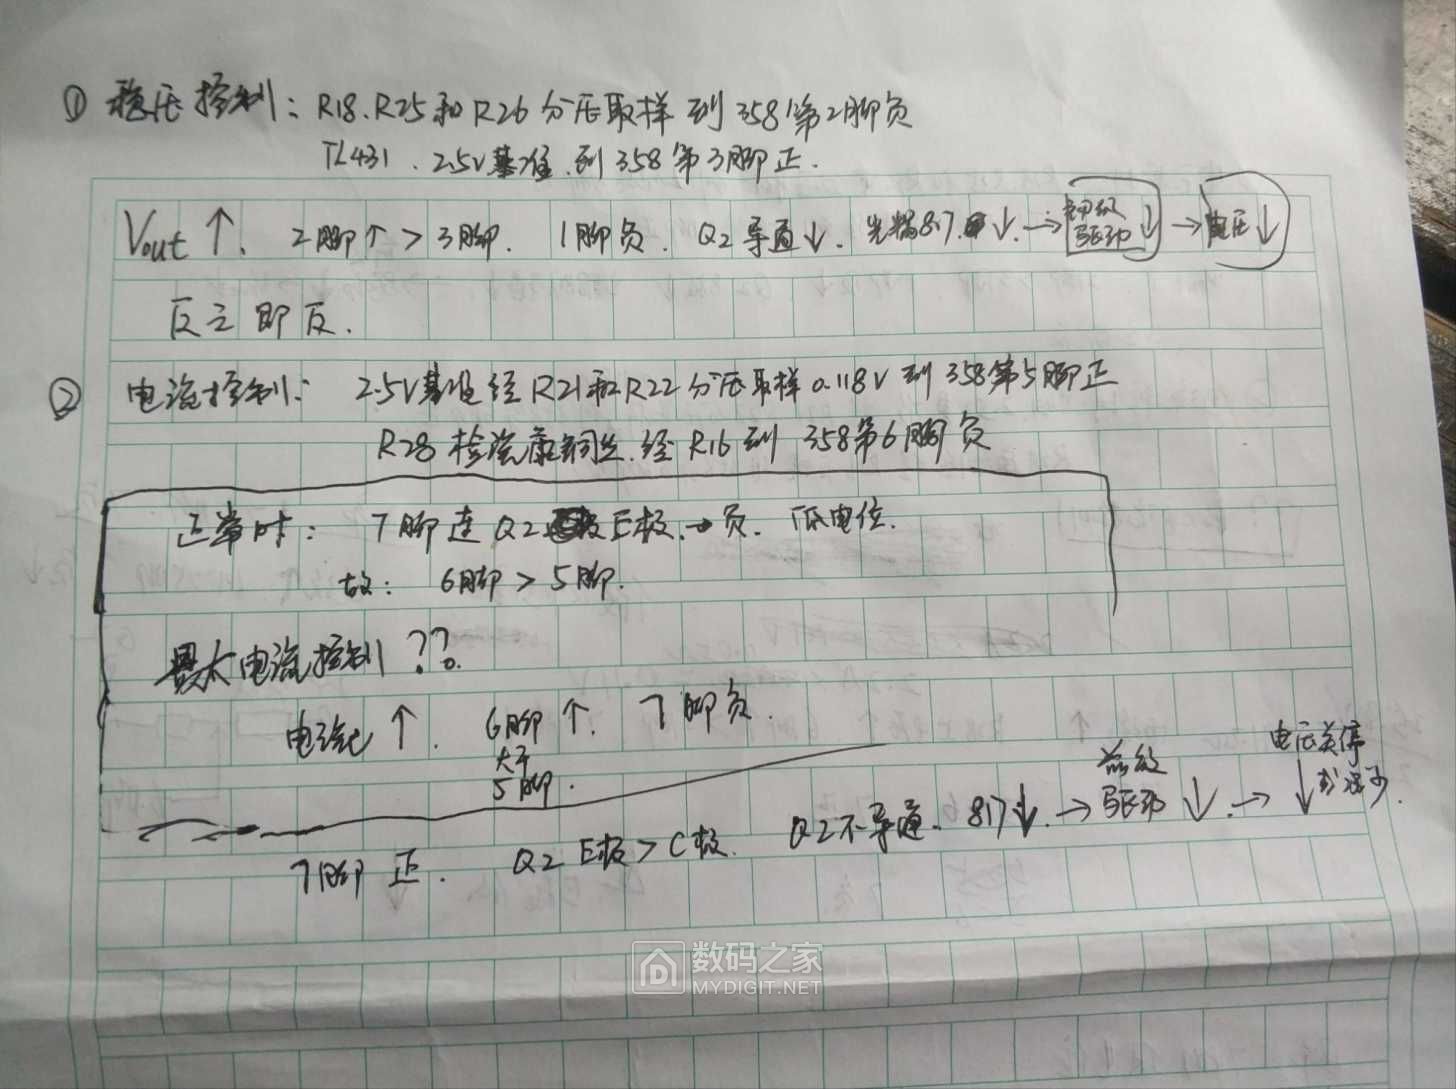 ① 稳压控制: R18、R25和R26分压取样到358第2脚负
TL431. 2.5V基准.到358第3脚正.
Vout ↑. 2脚↑ > 3脚. 1脚负. Q2导通↓. 光耦817.↓. → 初级驱动↓ → 电压↓
反之即反.
② 电流控制: 2.5V基准经R21和R22分压取样0.118V到358第5脚正
R28检流康铜丝.经R16到358第6脚负
正常时: 7脚连Q2 E极. → 负. 低电位.
故: 6脚 > 5脚.
最大电流控制??.
电流↑. 6脚↑. 7脚负.
大于
5脚.
7脚正. Q2 E极 > C极. Q2不导通. 817↓. → 前级驱动↓. → 电压关停↓或减少.
数码之家
MYDIGIT.NET